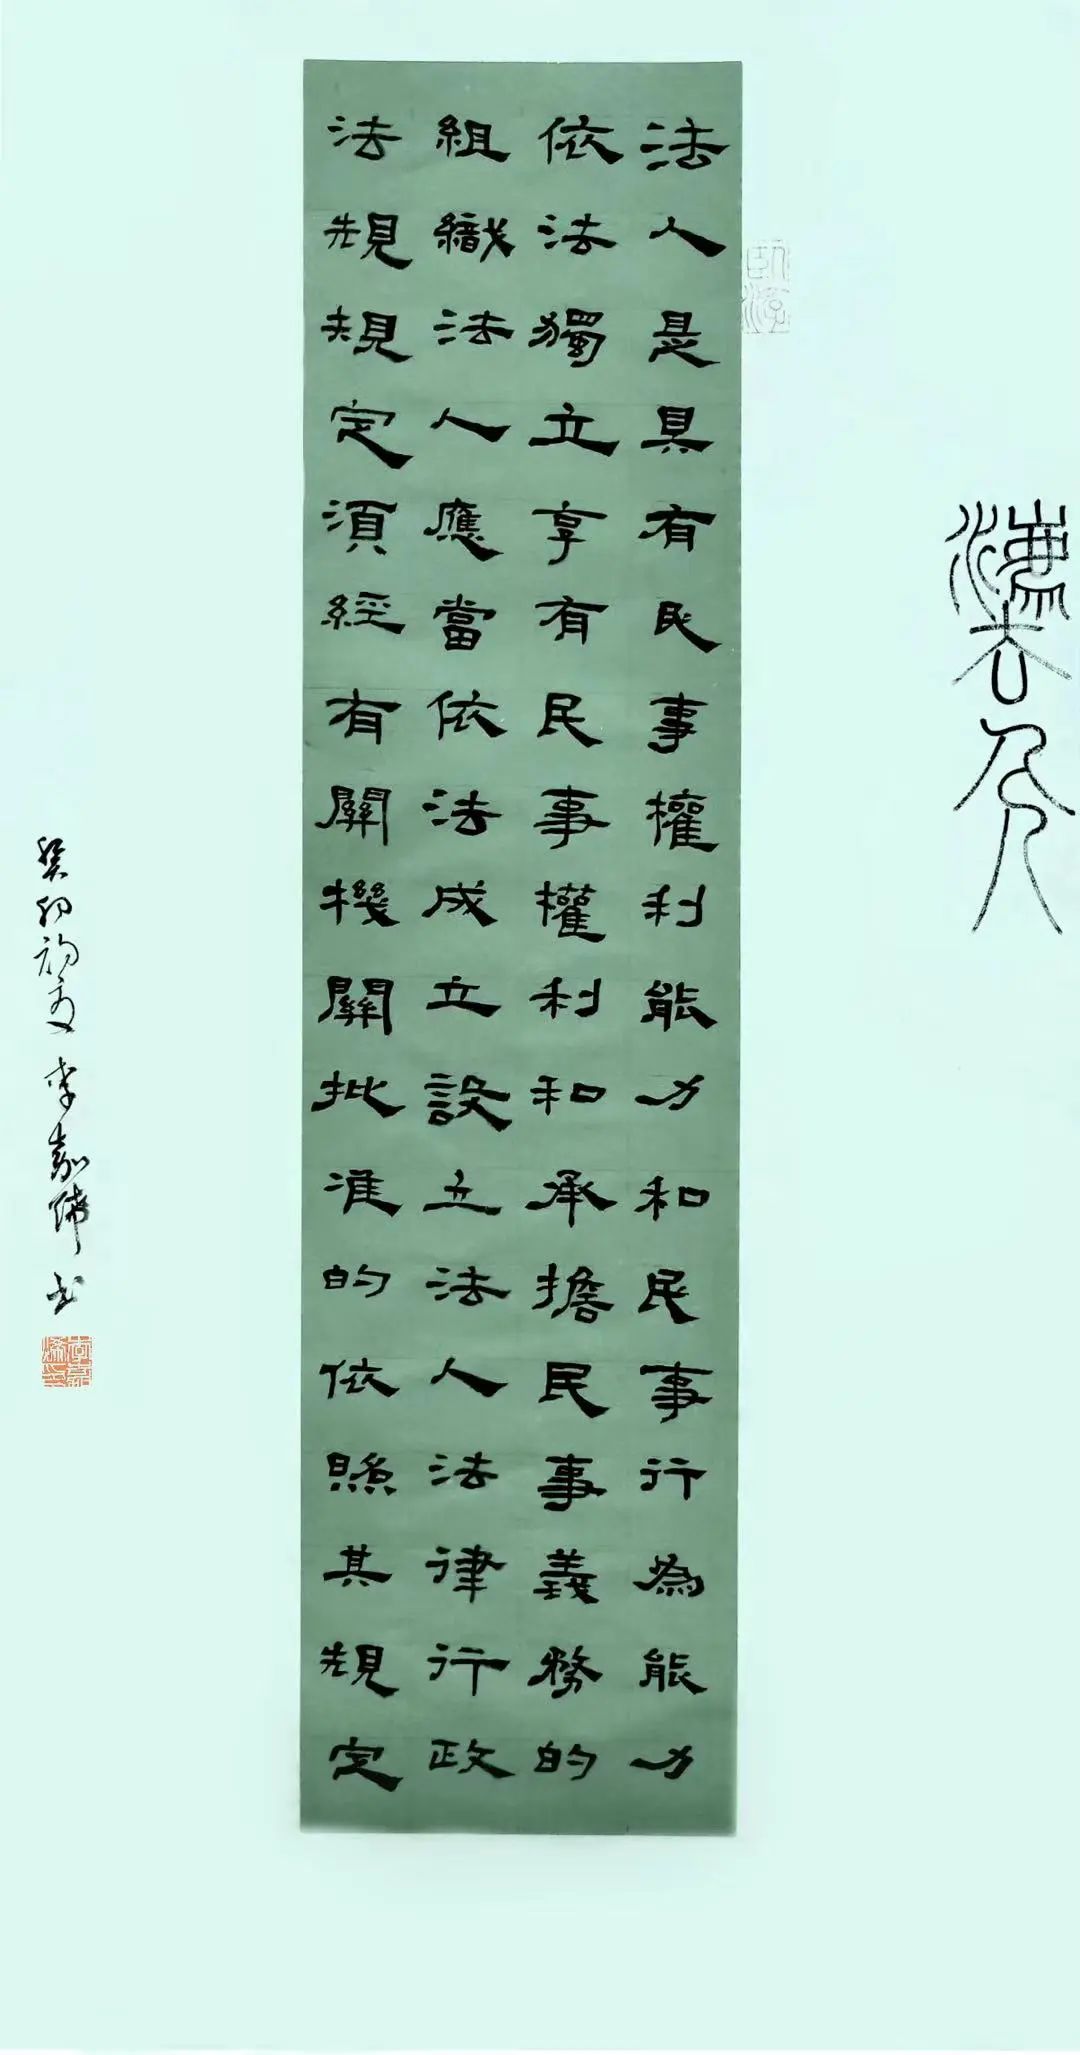 灋人
卧游
法人是具有民事權利能力和民事行為能力
依法獨立享有民事權利和承擔民事義務的
組織法人應當依法成立設立法人法律行政
法規規定須經有關機關批准的依照其規定
癸卯初夏李嘉書